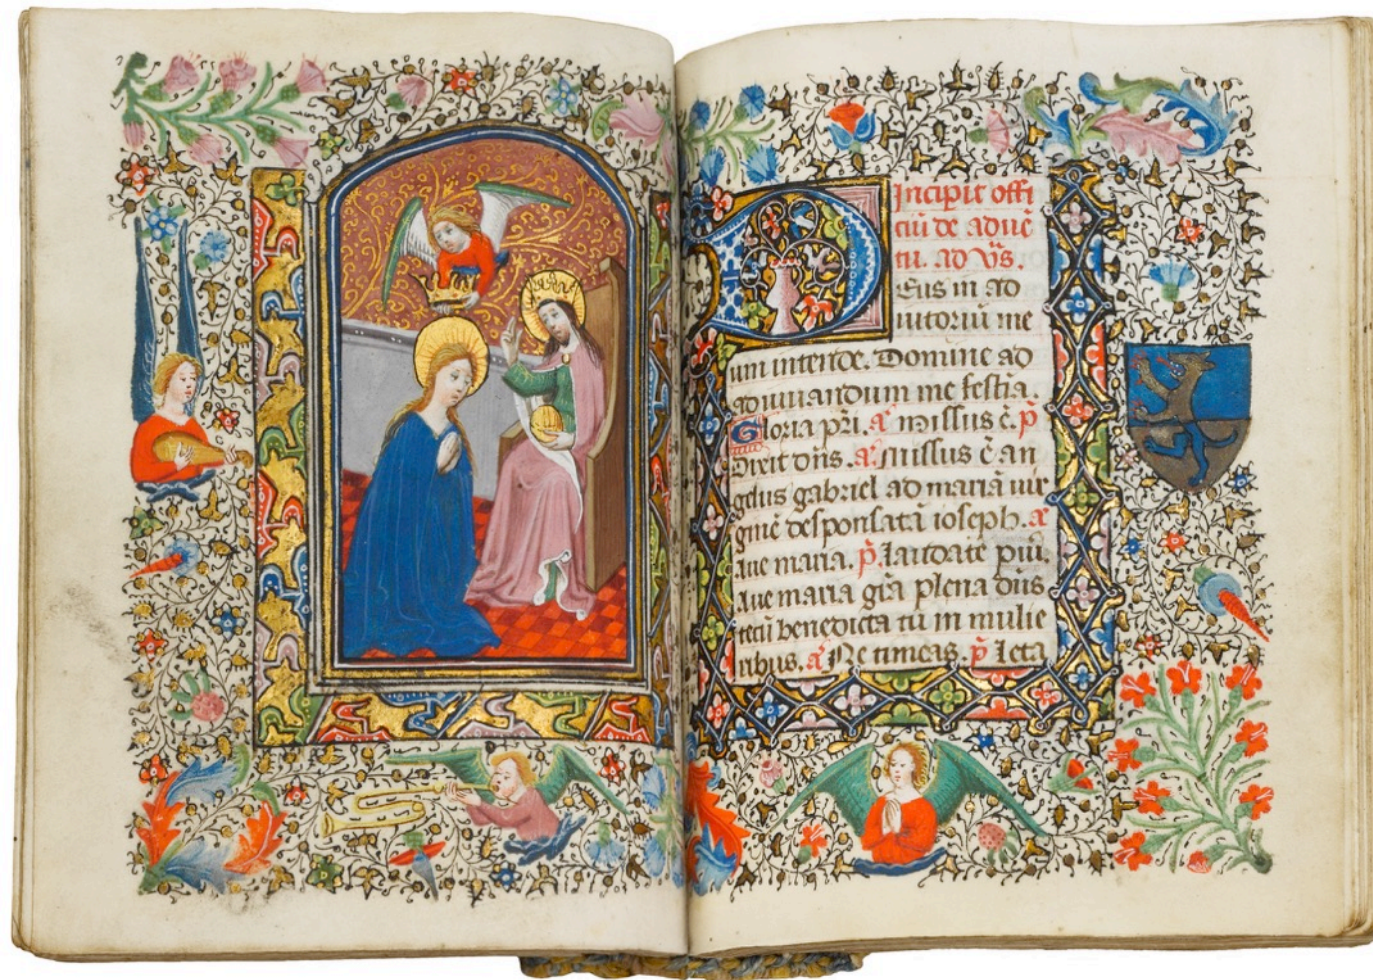 Incipit offi
ciū de aduē
tu. ad v̄s.
Deus in ad
iutoriū me
um intende. Domine ad
adiuuandum me festīa
Gloria pr̄i. a̅ Missus ē. p̄
Dixit dn̄s. a̅ Missus ē an
gelus gabriel ad mariā uir
ginē desponsatā ioseph. a̅
Aue maria. p̄. laudate
Aue maria grā plena dn̄s
tecū benedicta tu in mulie
ribus. a̅ Ne timeas. p̄ Leta